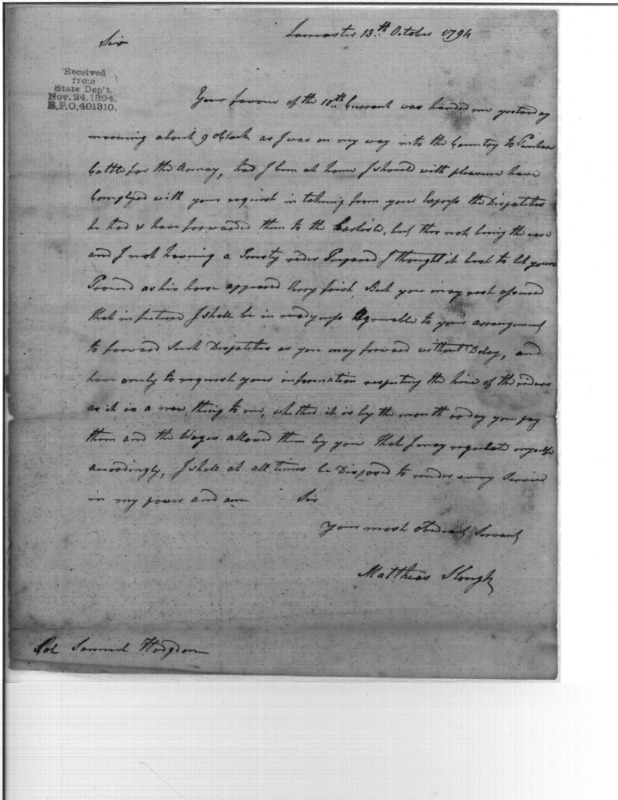 Lancaster 13th October 1794
Sir
Received
from
State Dep't.
Nov. 24, 1894.
R.P.O. 401310.
Your favour of the 10th Currant was handed me yesterday
morning about 9 oClock as I was on my way into the Country to Purchase
Cattle for the Armey, had I been at home I should with pleasure have
Complyed with your request in takeing from your Express the Dispatches
he had & have forwarded them to the Carlisle, but this not being the case
and I not haveing a Trusty rider Prepared I thought it best to let yours
Proceed as his horse appeared Very fresh, But you may rest assured
that in future I shall be in readyness Agreeable to your arrangement
to forward Such Dispatches as you may forward without Delay, and
have only to request your information respecting the hire of the riders
as it is a new thing to me, whether it is by the month or day you pay
them and the Wages allowed them by you that I may regulate myself
accordingly, I shall at all times be Disposed to render every Service
in my power and am Sir
Your most obedient Servant
Matthias Slough
Col Samuel Hodgdon